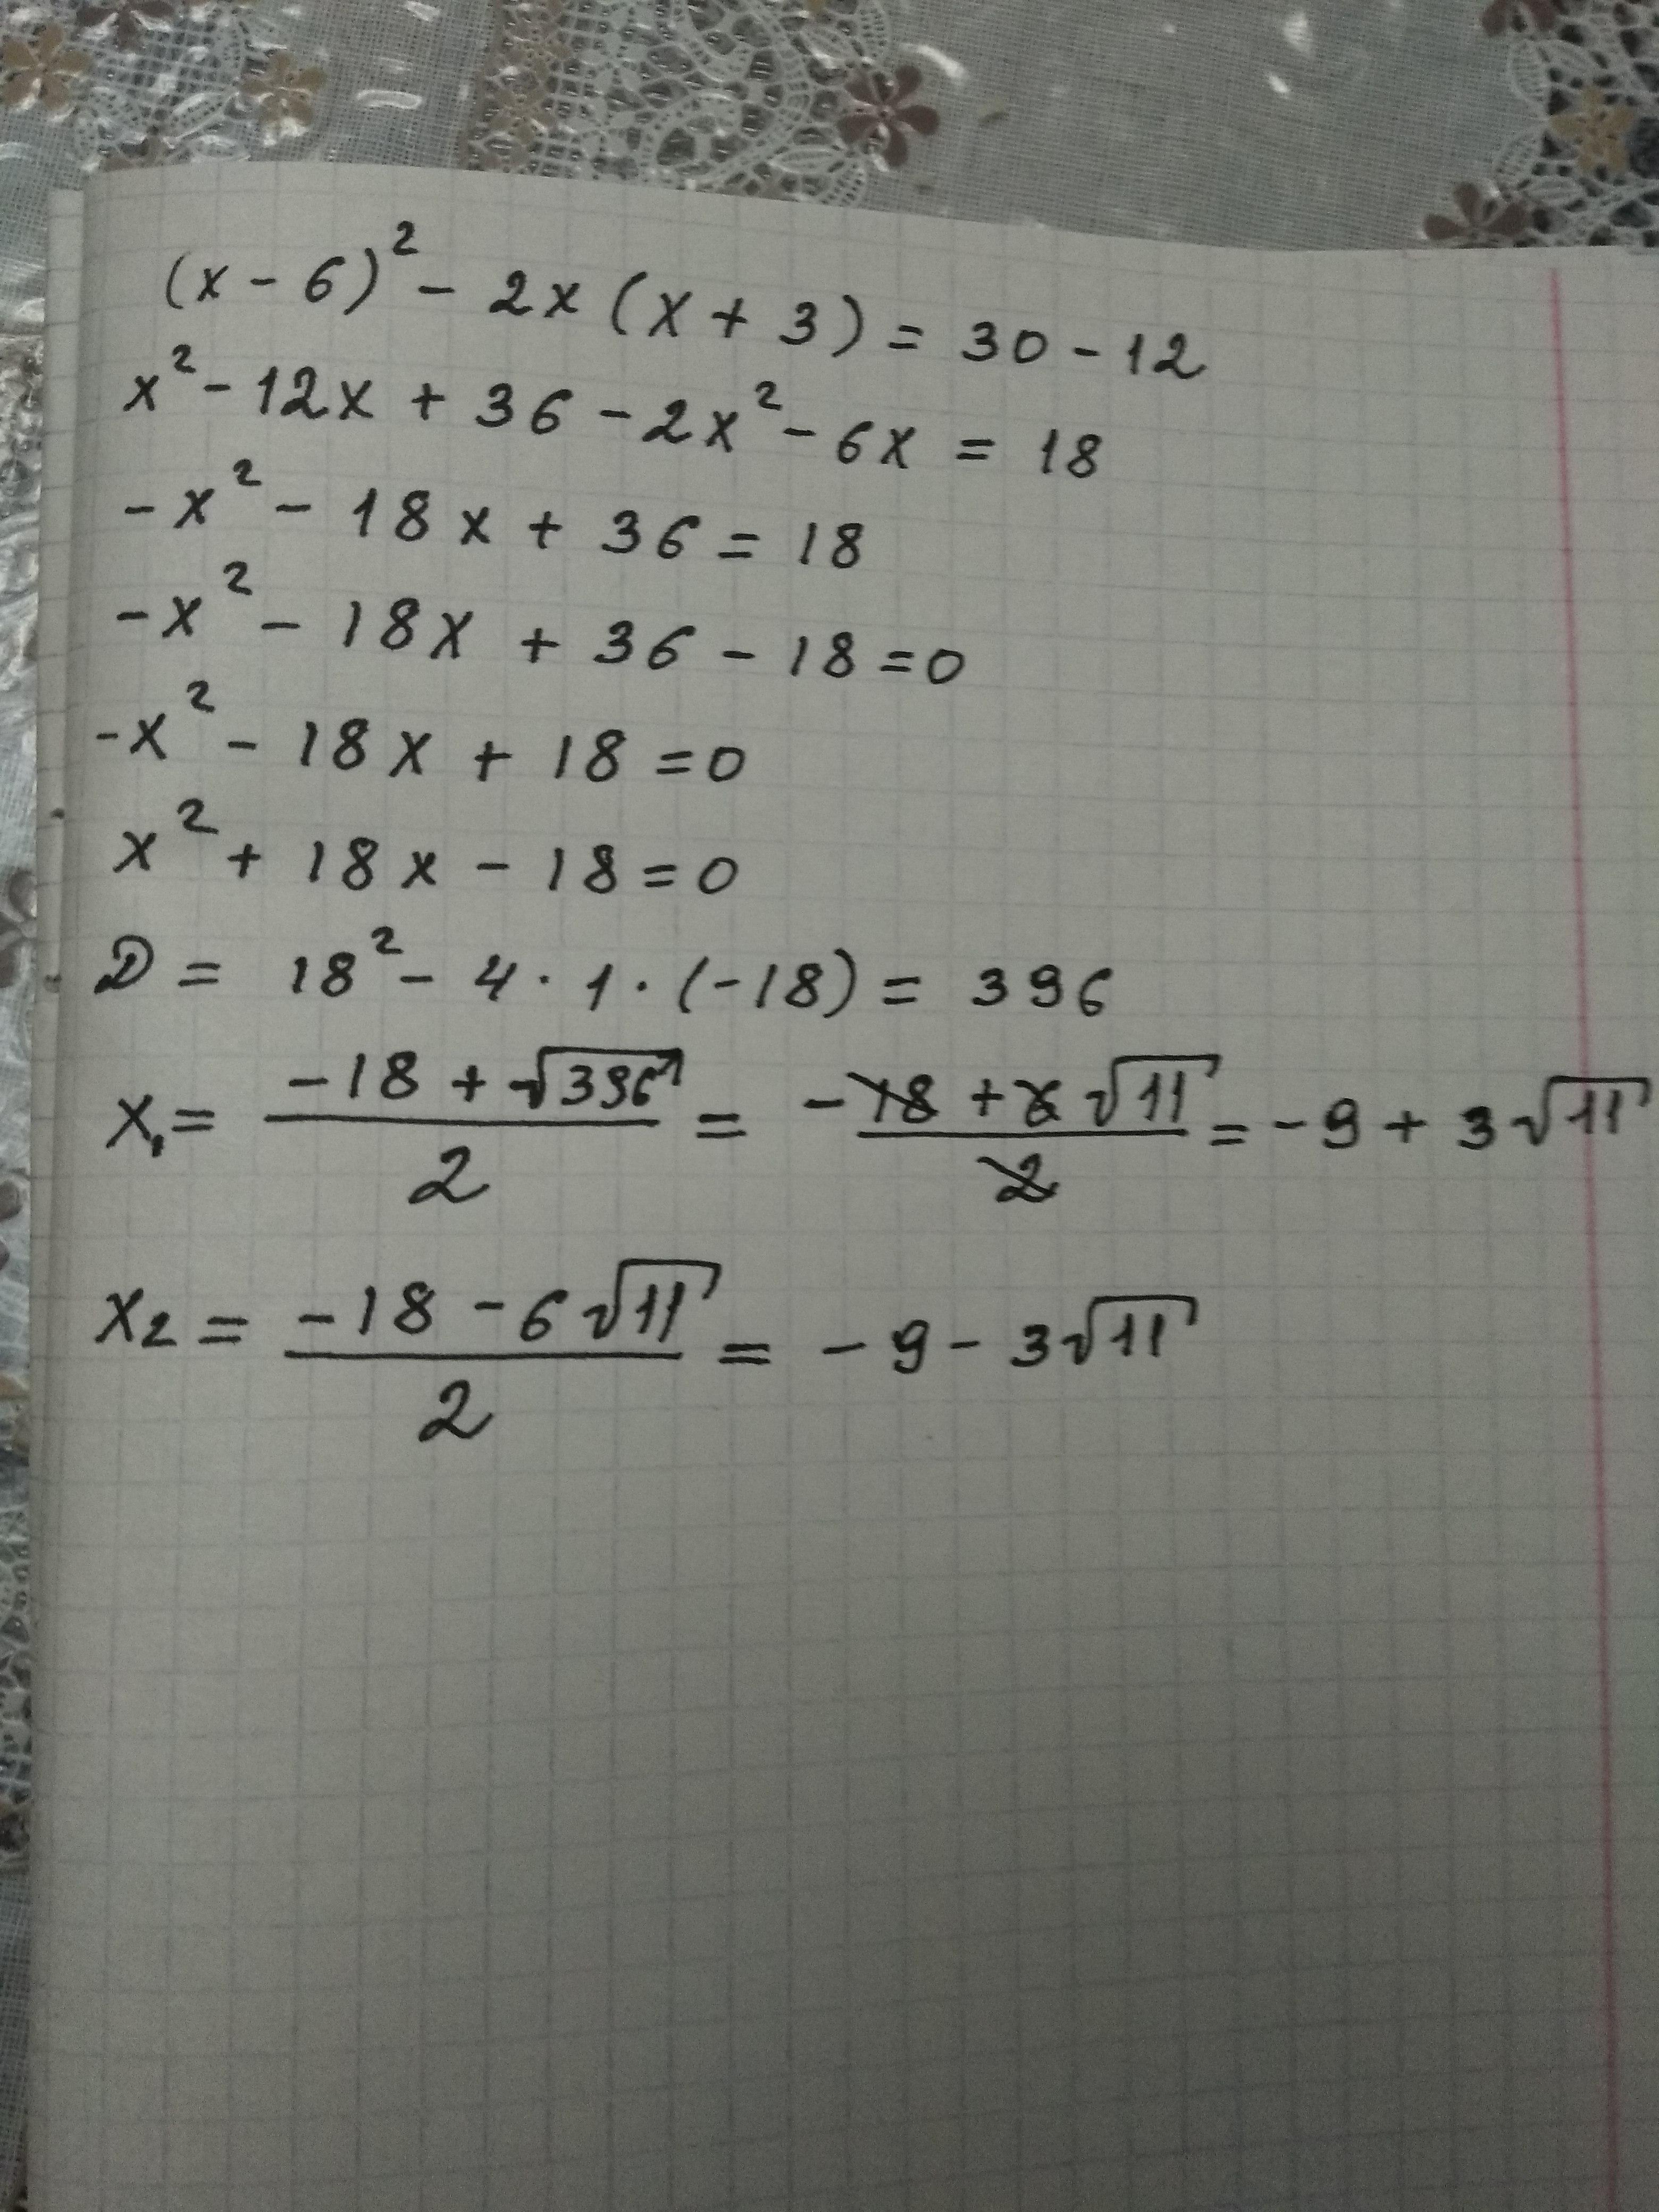 (x - 6)² - 2x (x + 3) = 30 - 12
x² - 12x + 36 - 2x² - 6x = 18
-x² - 18x + 36 = 18
-x² - 18x + 36 - 18 = 0
-x² - 18x + 18 = 0
x² + 18x - 18 = 0
D = 18² - 4 · 1 · (-18) = 396
x₁ = (-18 + √396)/2 = (-18 + 6√11)/2 = -9 + 3√11
x₂ = (-18 - 6√11)/2 = -9 - 3√11